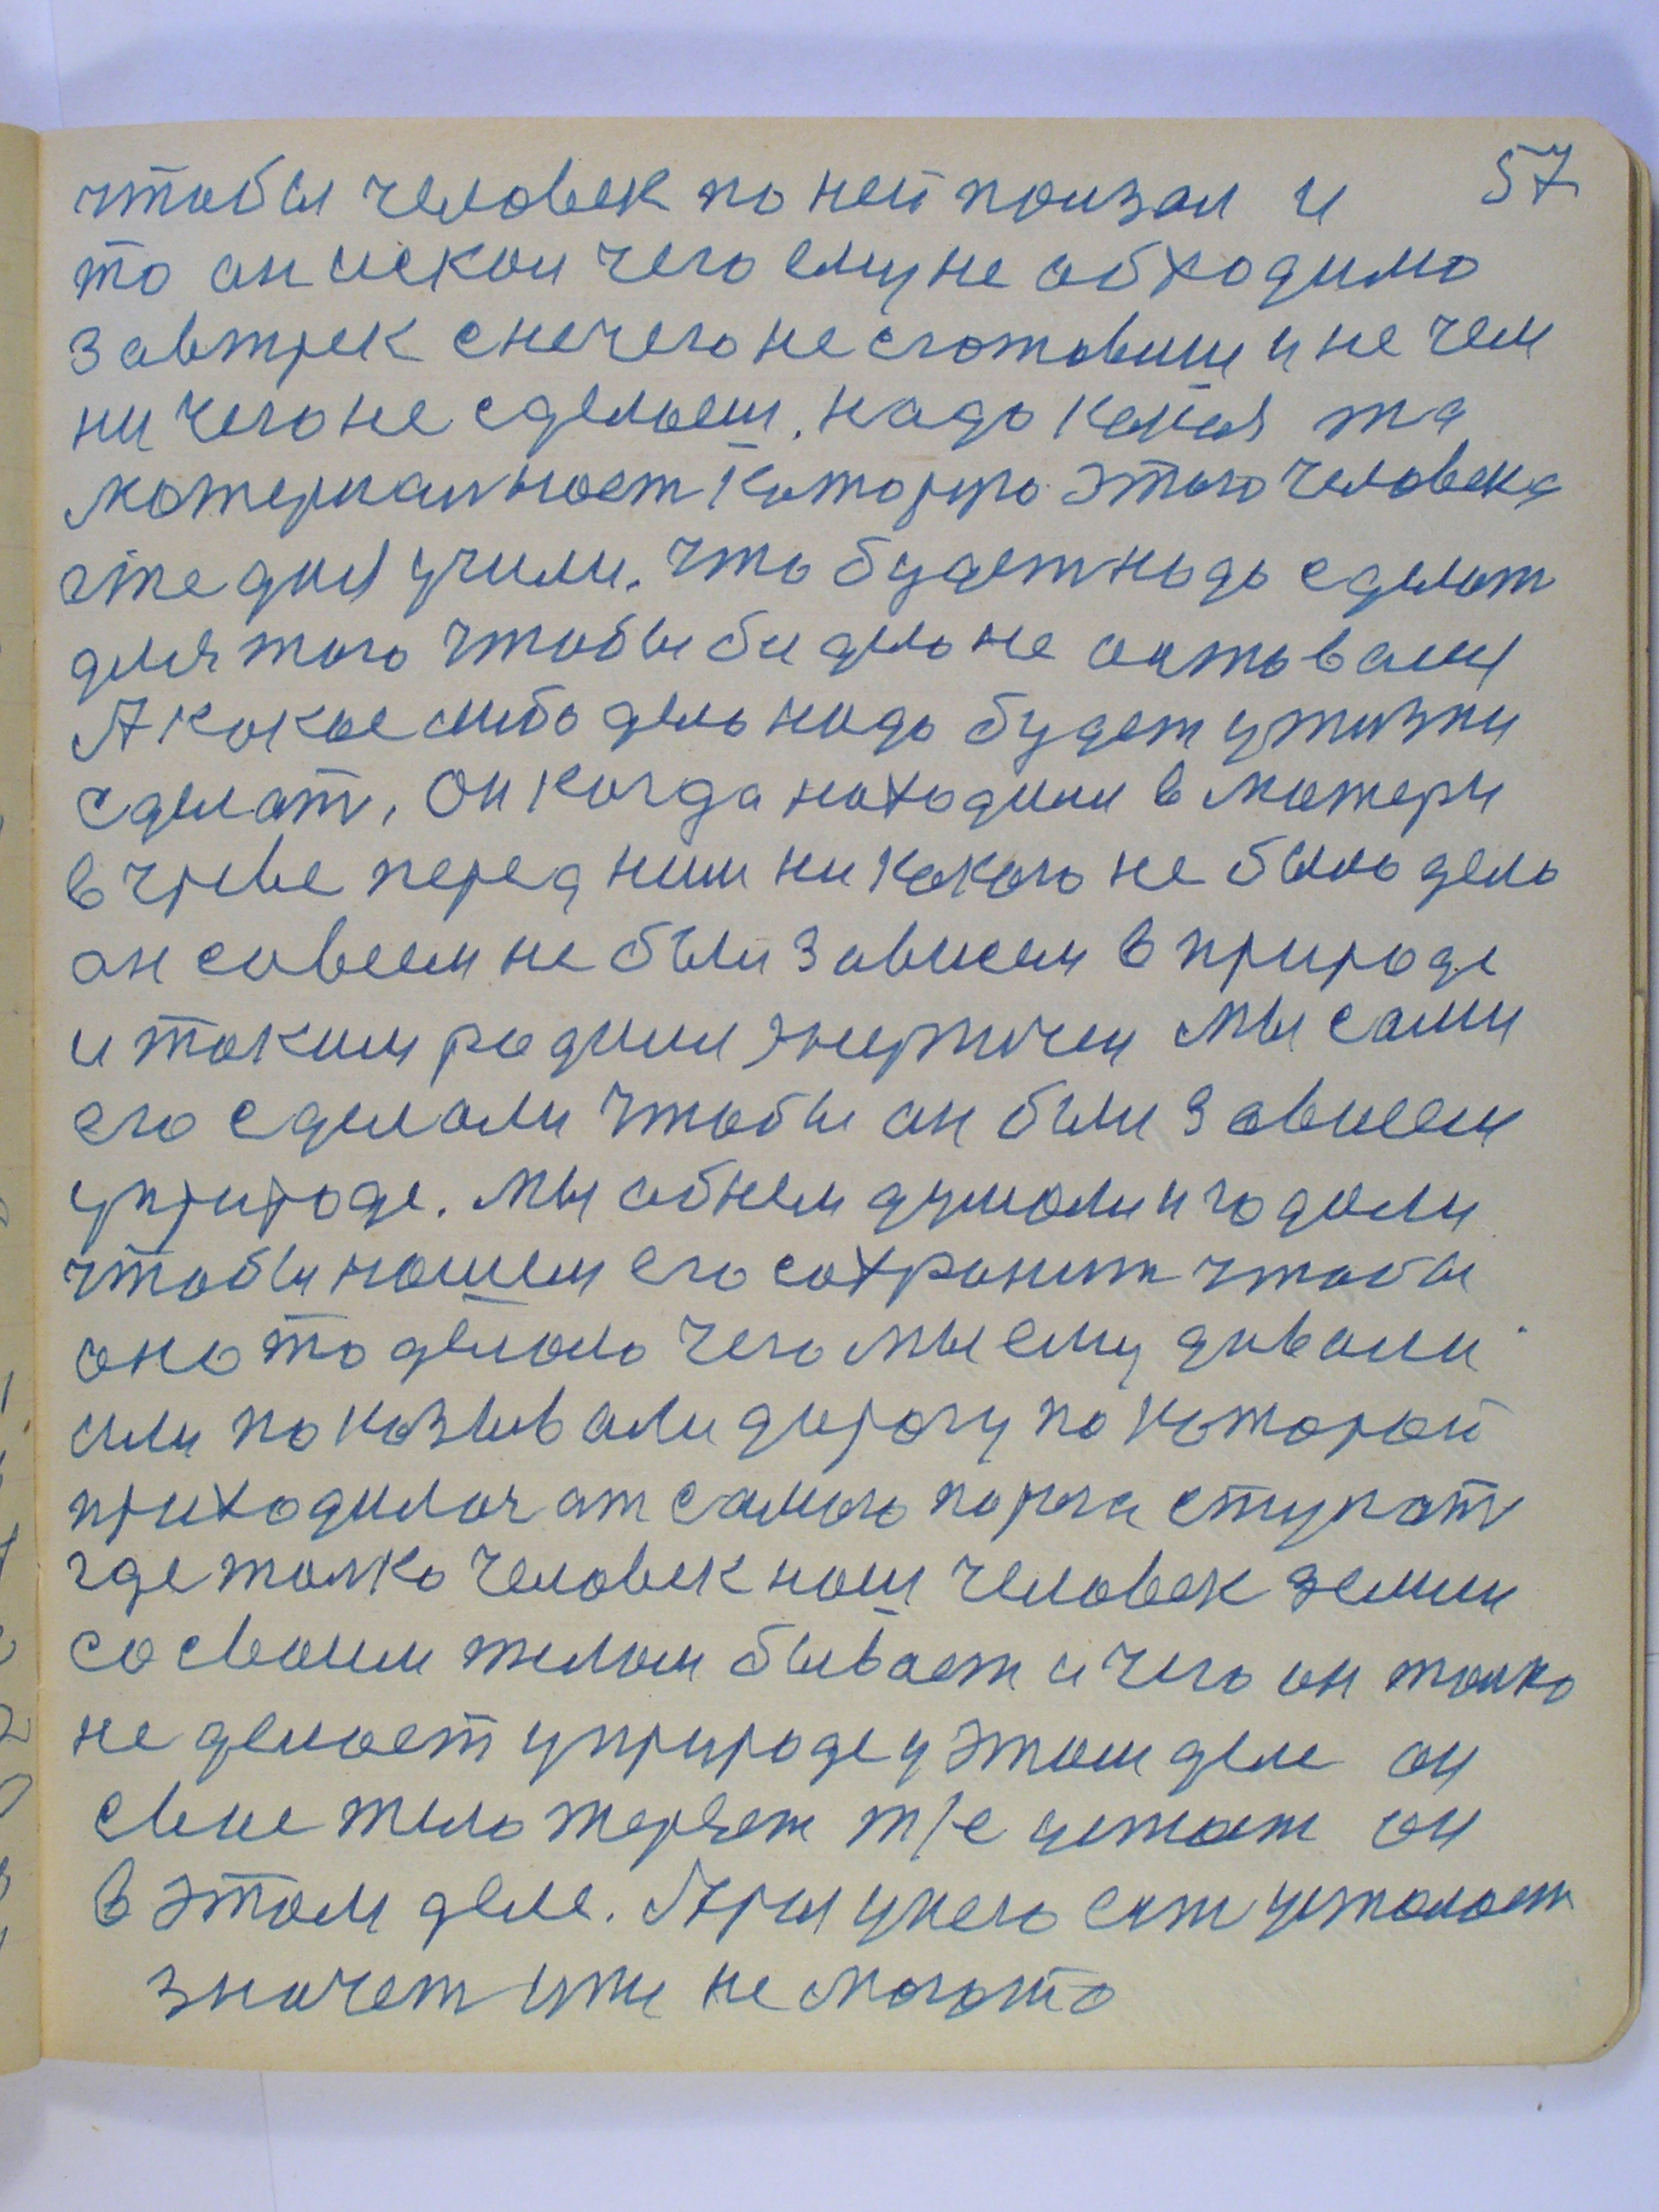 57
чтобы человек по ней ползал и
то он искал чего ему не обходимо
завтрек с нечего не сготовиш и не чем
ни чего не сделаеш. надо какая та
материалност которую этого человека
эте дня учили. что будет надо сделат
для того чтобы без дело не оставалис
А какое либо дело надо будет у жизни
сделат, Он когда находился в матери
в чреве перед ним ни какого не было дела
он совсем не был зависем в природе
и таким родился энергичем мы сами
его сделали чтобы он был зависем
у природе. мы об нем думали и годали
чтобы нашем его сохранит чтобы
оно то делало чего мы ему давали
или показывали дорогу по которой
приходилос от самого порога ступат
где толко человек наш человек земли
со своим телом бывает и чего он толко
не делает у природе у этом деле он
свое тело теряет т/е устает он
в этом деле. А раз у него ест усталост
значет уже не могота